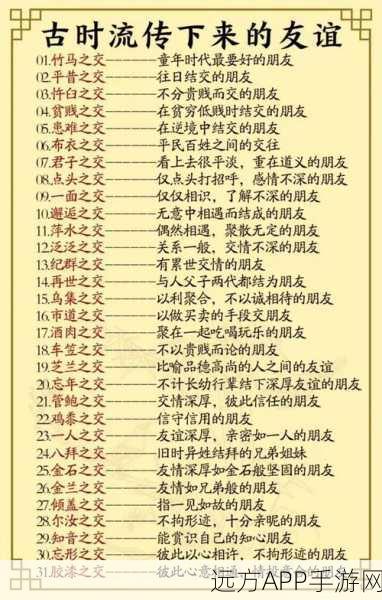 古时流传下来的友谊
01.竹马之交————童年时代最要好的朋友
02.平昔之交————往日结交的朋友
03.忤臼之交————不分贵贱而交的朋友
04.贫贱之交————在贫穷低贱时结交的朋友
05.患难之交————在逆境中结交的朋友
06.布衣之交————平民百姓之间的交往
07.君子之交————看上去很平淡，重在道义的朋友
08.点头之交————仅点头打招呼，感情不深的朋友
09.一面之交————仅仅相识，了解不深的朋友
10.邂逅之交————无意中相遇而结成的朋友
11.萍水之交————偶然相遇，聚散无定的朋友
12.泛泛之交————关系一般，交情不深的朋友
13.纪群之交————有累世交情的朋友
14.再世之交————与人父子两代都结为朋友
15.乌集之交————以利聚合，不以诚相待的朋友
16.市道之交————以做买卖的手段交朋友
17.酒肉之交————聚在一起吃喝玩乐的朋友
18.车笠之交————不以贵贱而论的朋友
19.芝兰之交————比喻品德高尚的人之间的友谊
20.忘年之交————不计长幼行辈结下深厚友谊的朋友
21.管鲍之交————交情深厚，彼此信任的朋友
22.鸡黍之交————信守信用的朋友
23.一人之交————友谊深厚，亲密如一人的朋友
24.八拜之交————旧时异姓结拜的兄弟姐妹
25.金石之交————友情深厚如金石般坚固的朋友
26.金兰之交————友情如兄弟般的朋友
27.倾盖之交————指一见如故的朋友
28.尔汝之交————不拘形迹，十分亲昵的朋友
29.知音之交————能赏识自己的知心朋友
30.忘形之交————彼此以心相许，不拘形迹的朋友
31.胶漆之交————彼此心意相通，情投意合的朋友
远方APP手游网